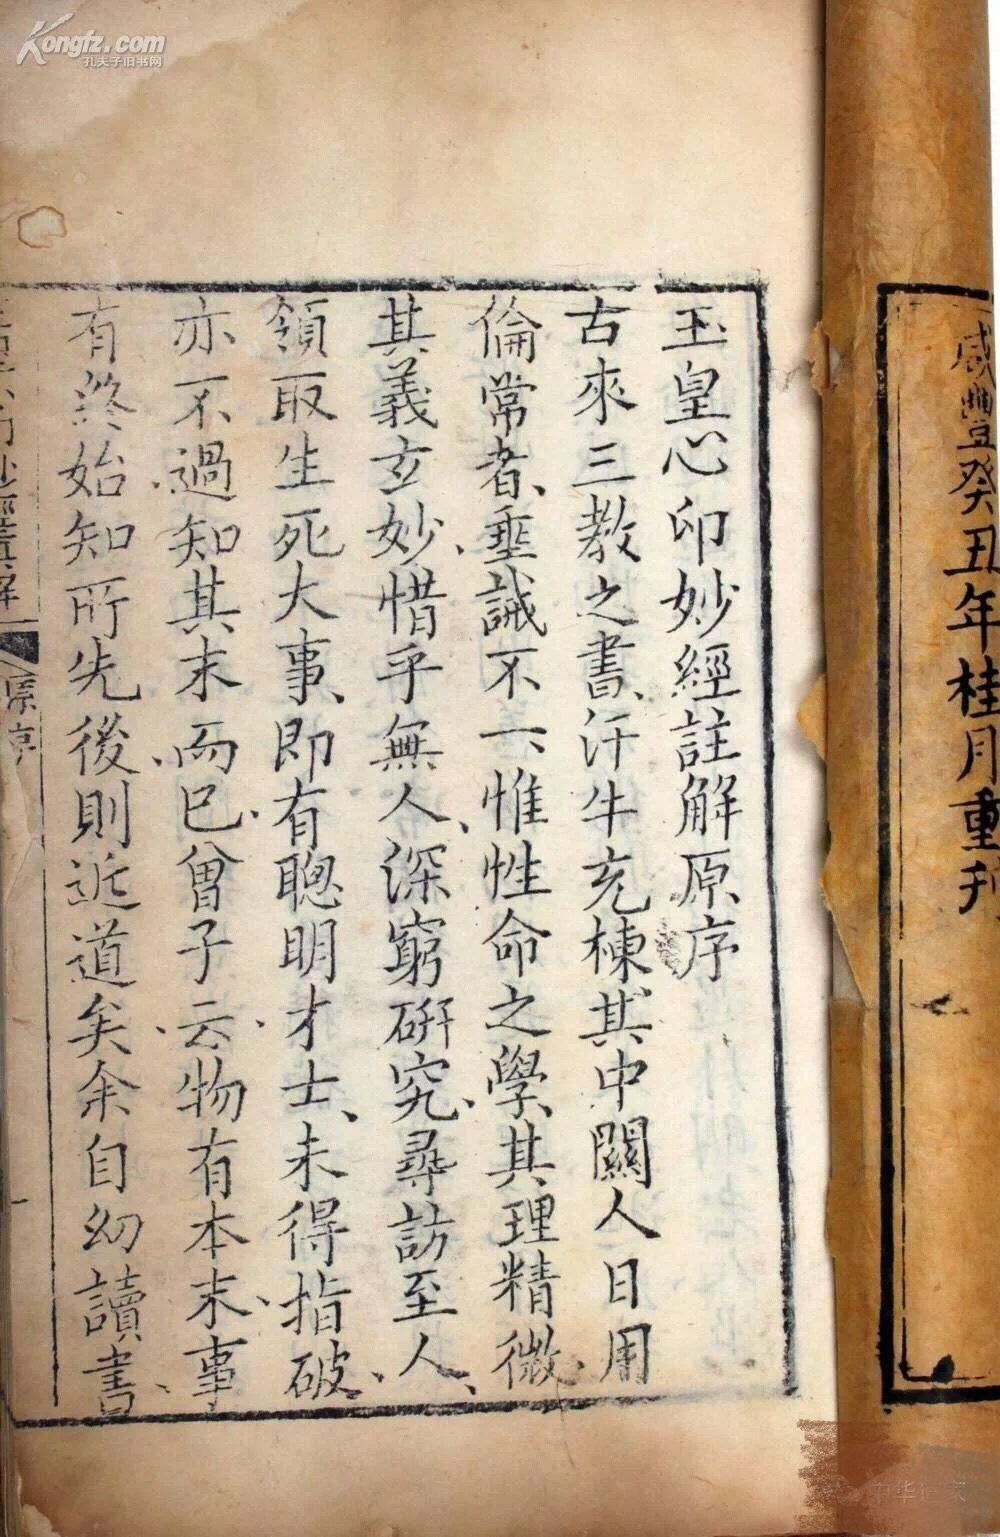 Kongfz.com
孔夫子旧书网
咸豐癸丑年桂月重刊
玉皇心印妙經註解原序
古來三教之書、汗牛充棟、其中關人日用
倫常者、垂誡不一、惟性命之學、其理精微、
其義玄妙、惜乎無人、深窮硏究、尋訪至人、
領取生死大事、即有聰明才士、未得指破、
亦不過知其末而已、曾子云、物有本末、事
有終始、知所先後、則近道矣、余自幼讀書、
妙經註解
原序
中华道家